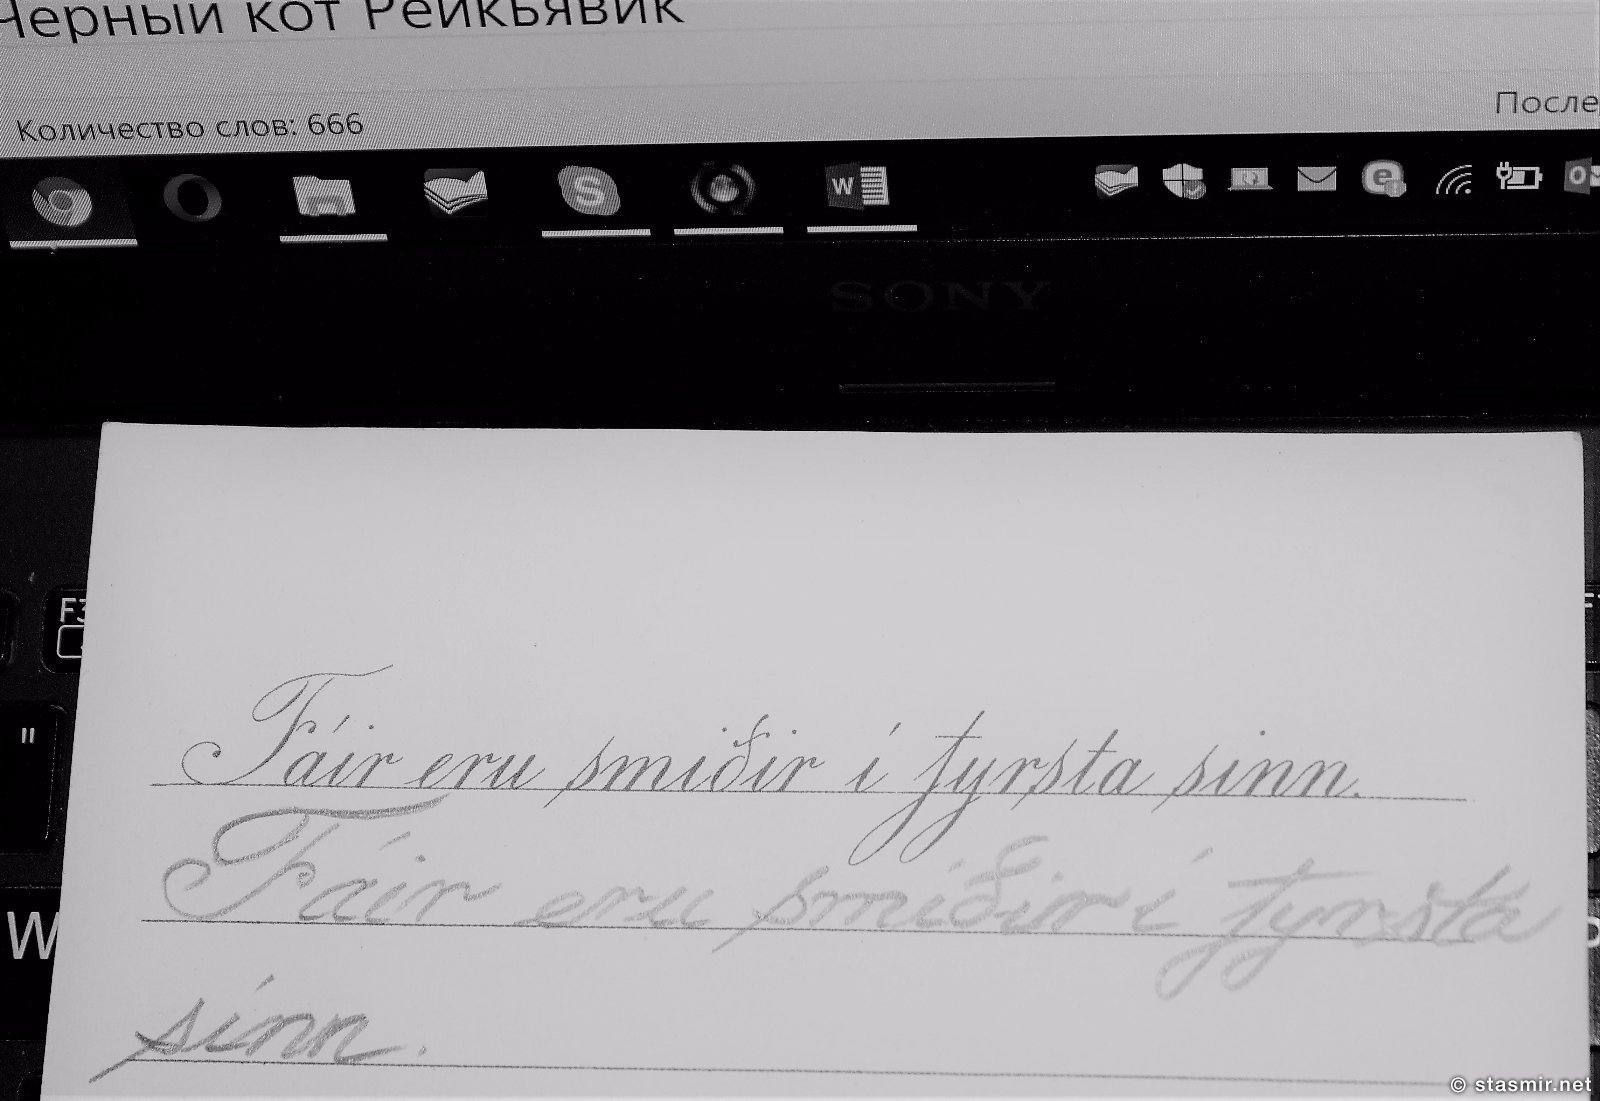 Черный кот Рейкьявик
Количество слов: 666
После
SONY
F3
"
W
Fáir eru smiðir í fyrsta sinn.
Fáir eru smiðir í fyrsta
sinn.
© stasmir.net